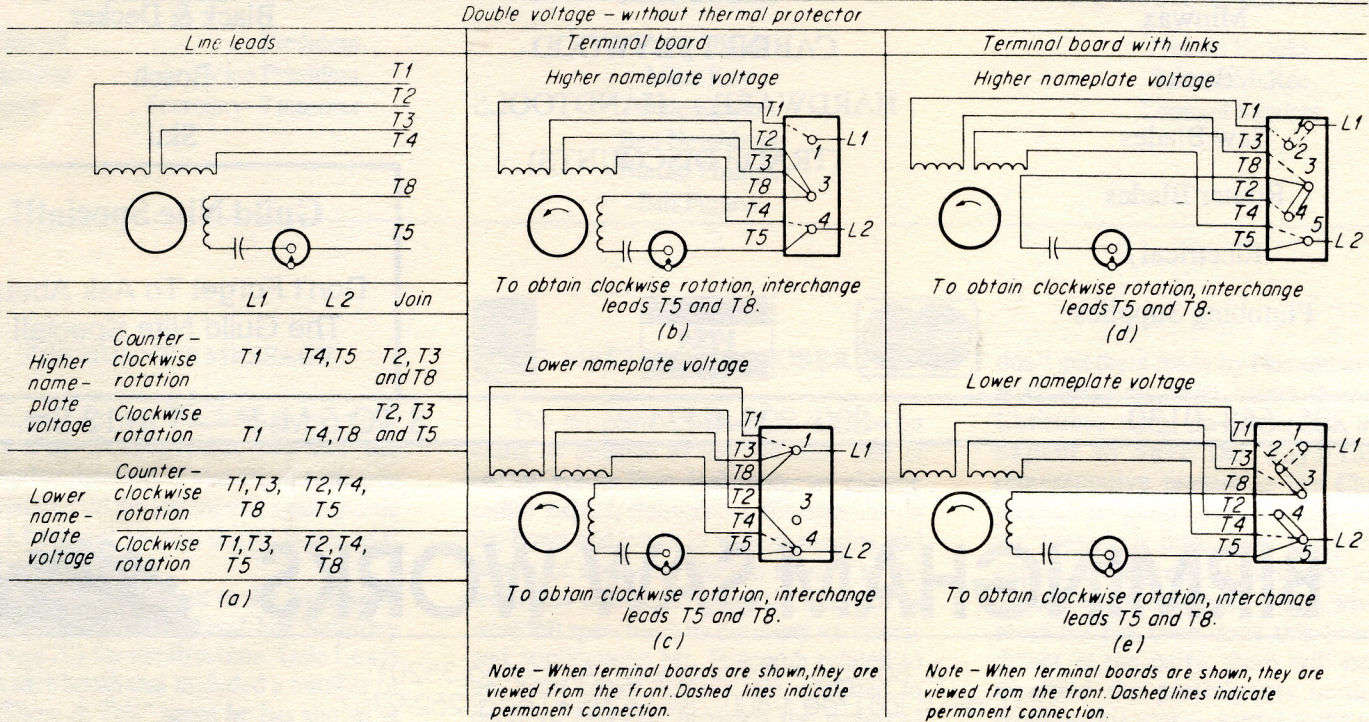 Double voltage – without thermal protector
Line leads
T1
T2
T3
T4
T8
T5
L1 L2 Join
Higher name- plate voltage
Counter- clockwise rotation
T1 T4,T5 T2, T3 and T8
Clockwise rotation
T1 T4,T8 T2, T3 and T5
Lower name- plate voltage
Counter- clockwise rotation
T1,T3, T8 T2,T4, T5
Clockwise rotation
T1,T3, T5 T2,T4, T8
(a)
Terminal board
Higher nameplate voltage
T1
T2
T3
T8
T4
T5
1
3
4
L1
L2
To obtain clockwise rotation, interchange
leads T5 and T8.
(b)
Lower nameplate voltage
T1
T3
T8
T2
T4
T5
1
3
4
L1
L2
To obtain clockwise rotation, interchange
leads T5 and T8.
(c)
Note – When terminal boards are shown, they are
viewed from the front. Dashed lines indicate
permanent connection.
Terminal board with links
Higher nameplate voltage
T1
T3
T8
T2
T4
T5
1
2
3
4
5
L1
L2
To obtain clockwise rotation, interchange
leads T5 and T8.
(d)
Lower nameplate voltage
T1
T3
T8
T2
T4
T5
1
2
3
4
5
L1
L2
To obtain clockwise rotation, interchange
leads T5 and T8.
(e)
Note – When terminal boards are shown, they are
viewed from the front. Dashed lines indicate
permanent connection.